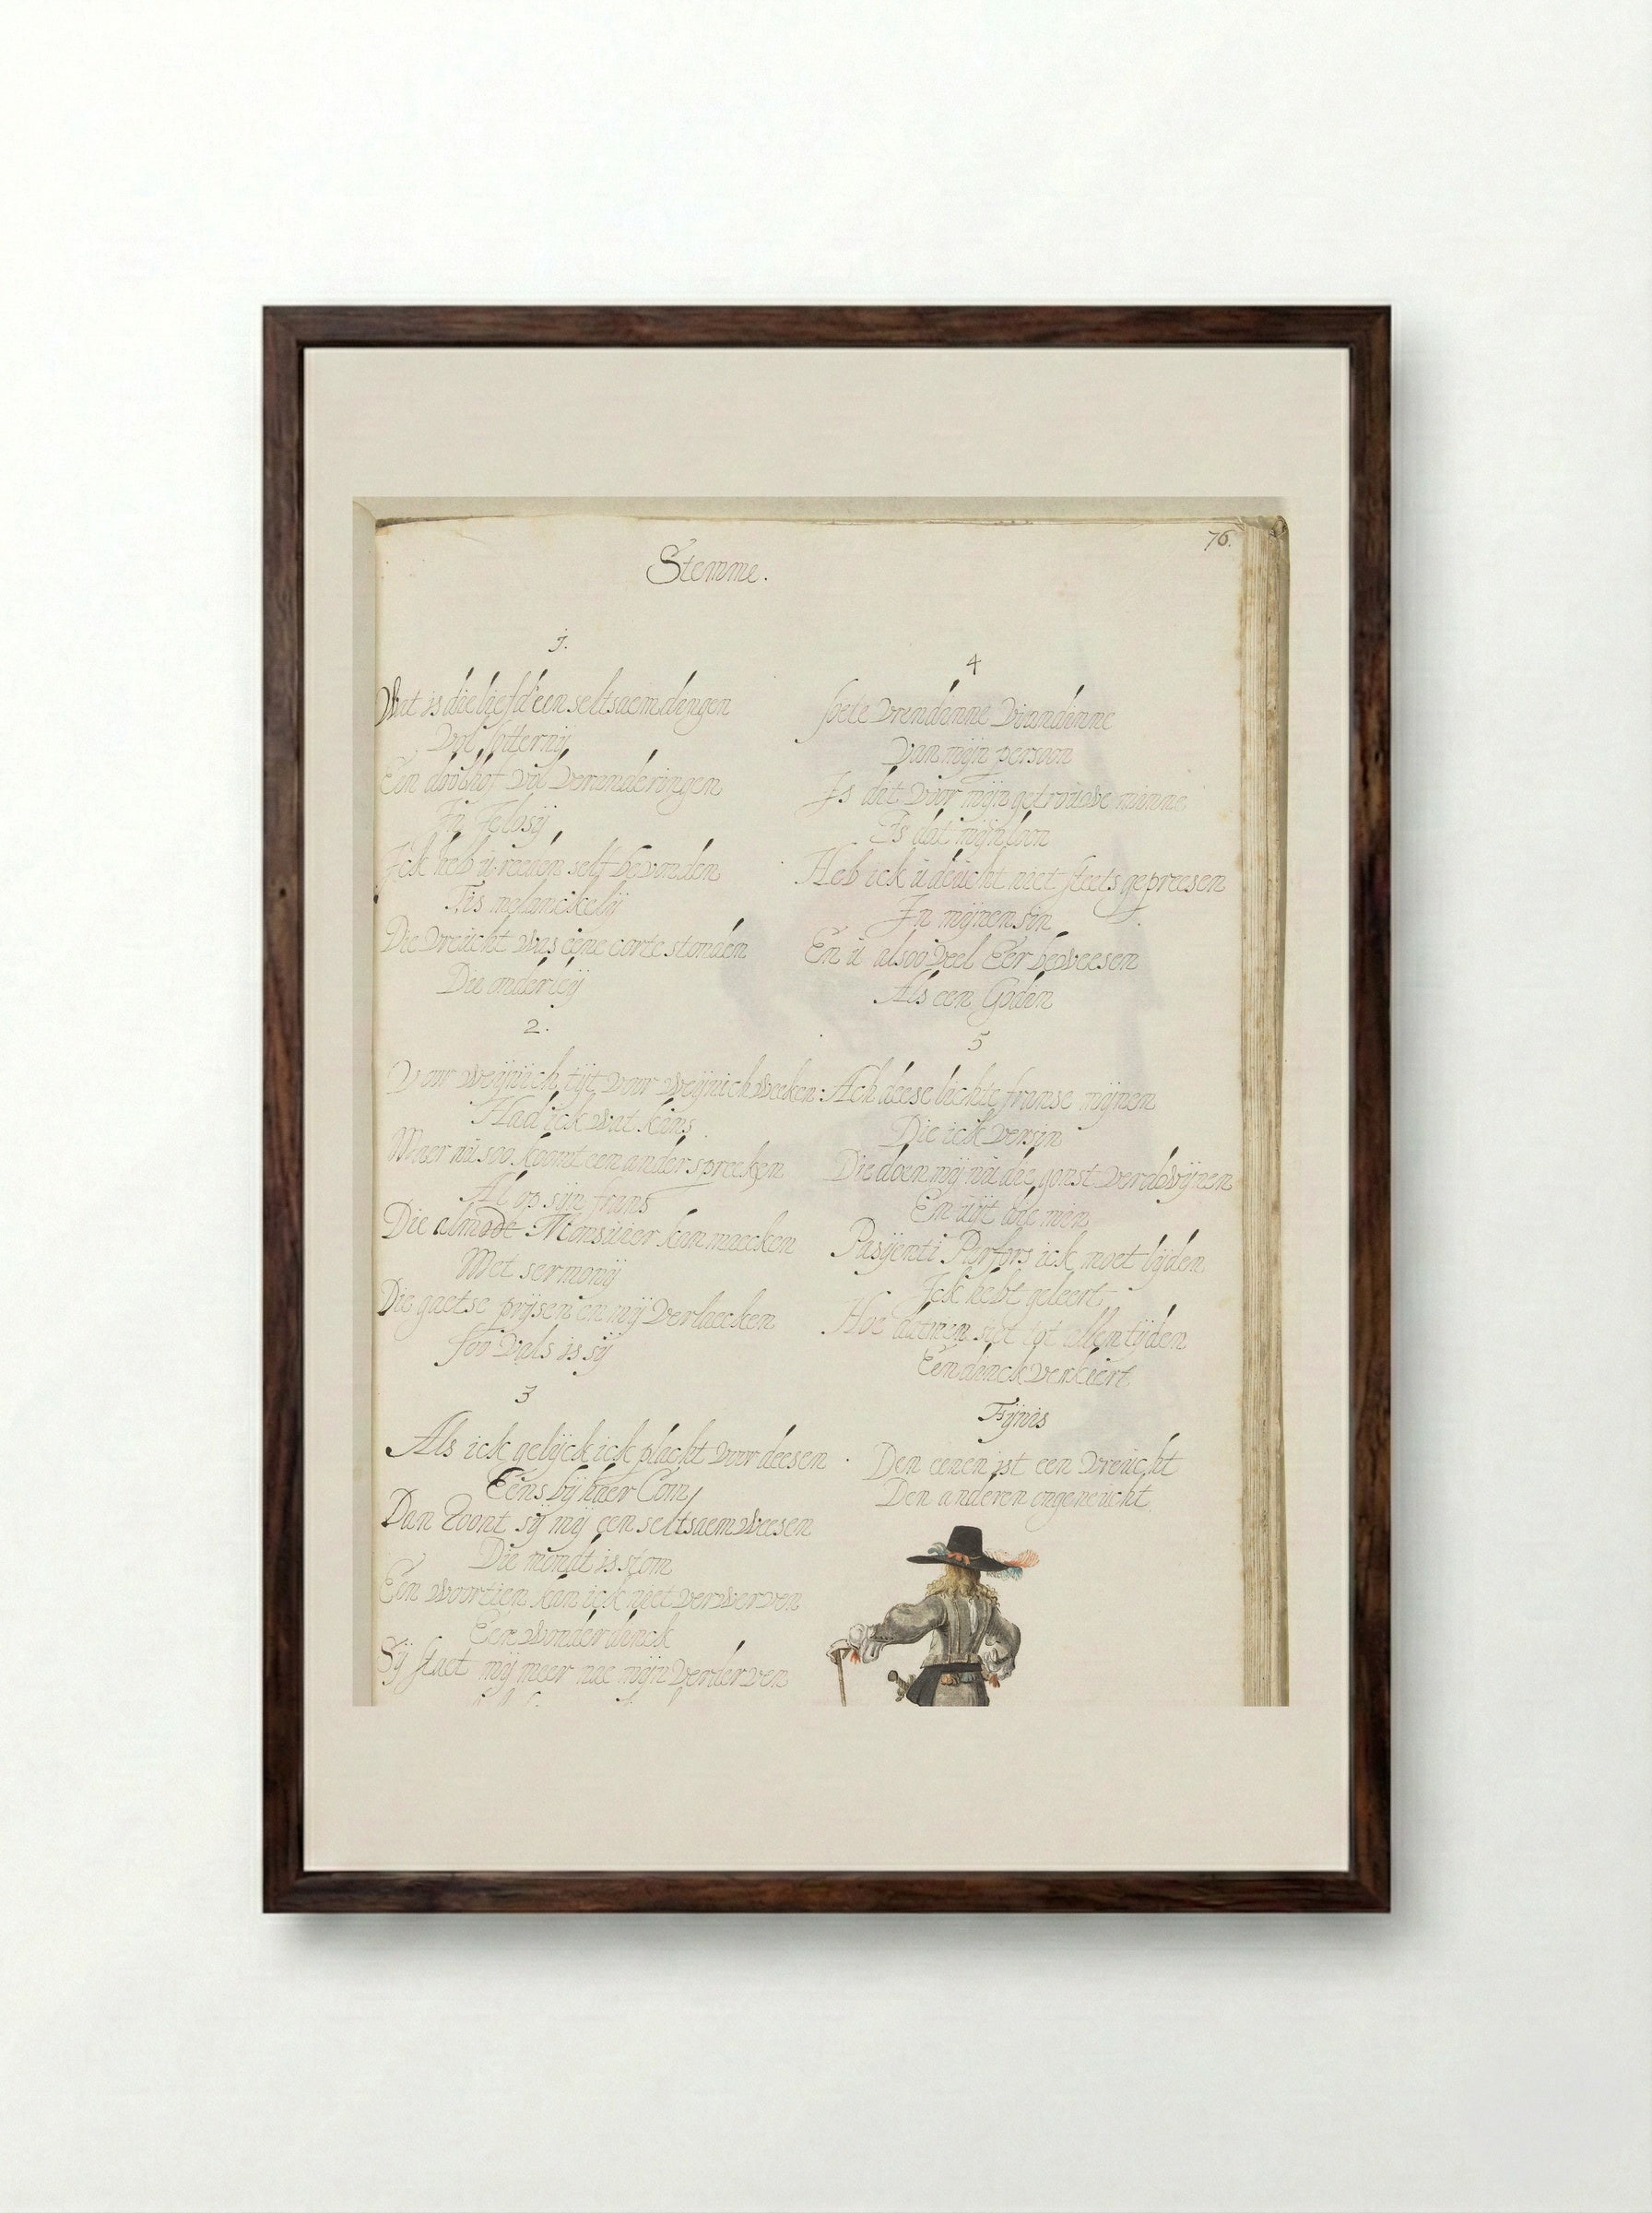 76.
Stemme.
1.
Wat is die liefd' een seltsaem dingen
Vol fotternij
Een doolhof vol veranderingen
In Jelosij
Ick heb u reeden self bevonden
Tis melanckelij
Die vreucht was eene corte stonden
Die anderleij
2.
Voor weijnich tijt voor weijnich weeken
Had ick wat kans
Maer nu soo koomt een ander spreeken
Al op sijn frans
Die almode Monsuier kan maecken
Met sermonij
Die gaetse prijsen en mij verlaecken
soo vals is sij
3
Als ick gelijck ick placht voor deesen
Eens bij haer Com
Dan toont sij mij een seltsaem weesen
Die mondt is stom
Een woortien kan ick niet verwerven
Een wonder dinck
Sij staet mij meer nae mijn verderven
4
soete vrendinne viandinne
Van mijn persoon
Is dat voor mijn getrouwe minne
Is dat mijn loon
Heb ick u deucht niet staets gepreesen
In mijnen sin
En u alsoo veel Eer beweesen
Als een Godin
5
Ach deese lichte franse mijnen
Die ick versin
Die doen mij nu die gonst verdwijnen
En uijt die min
Pasijenti Parfors ick moet lijden
Ick hebt geleert
Hoe datmen siet tot allen tijden
Een dinck verkeert
Fijnis
Den eenen ist een vreucht
Den anderen ongeneucht